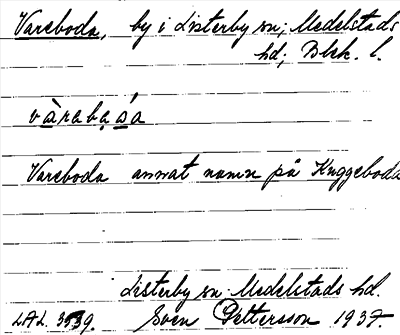 Vareboda, by i Listerby sn; Medelstads
hd; Blek. l.
vàrabạśa
Vareboda annat namn på Kuggeboda
Listerby sn Medelstads hd.
LAL. 3539. Sven Pettersson 1937.